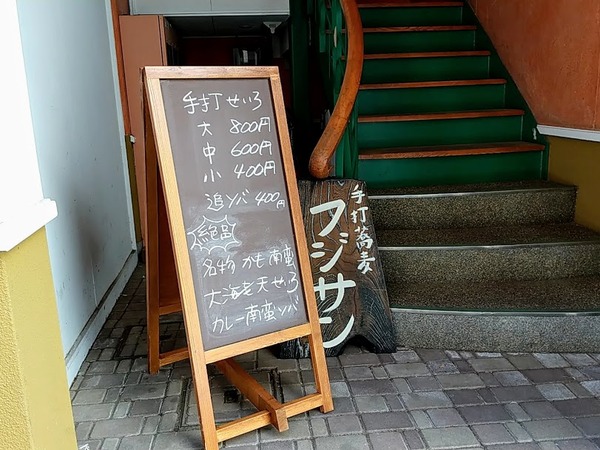 手打せいろ
大 800円
中 600円
小 400円
追ソバ 400円
絶品
名物 かも南蛮
大海老天せいろ
カレー南蛮ソバ
手打蕎麦
フジサン